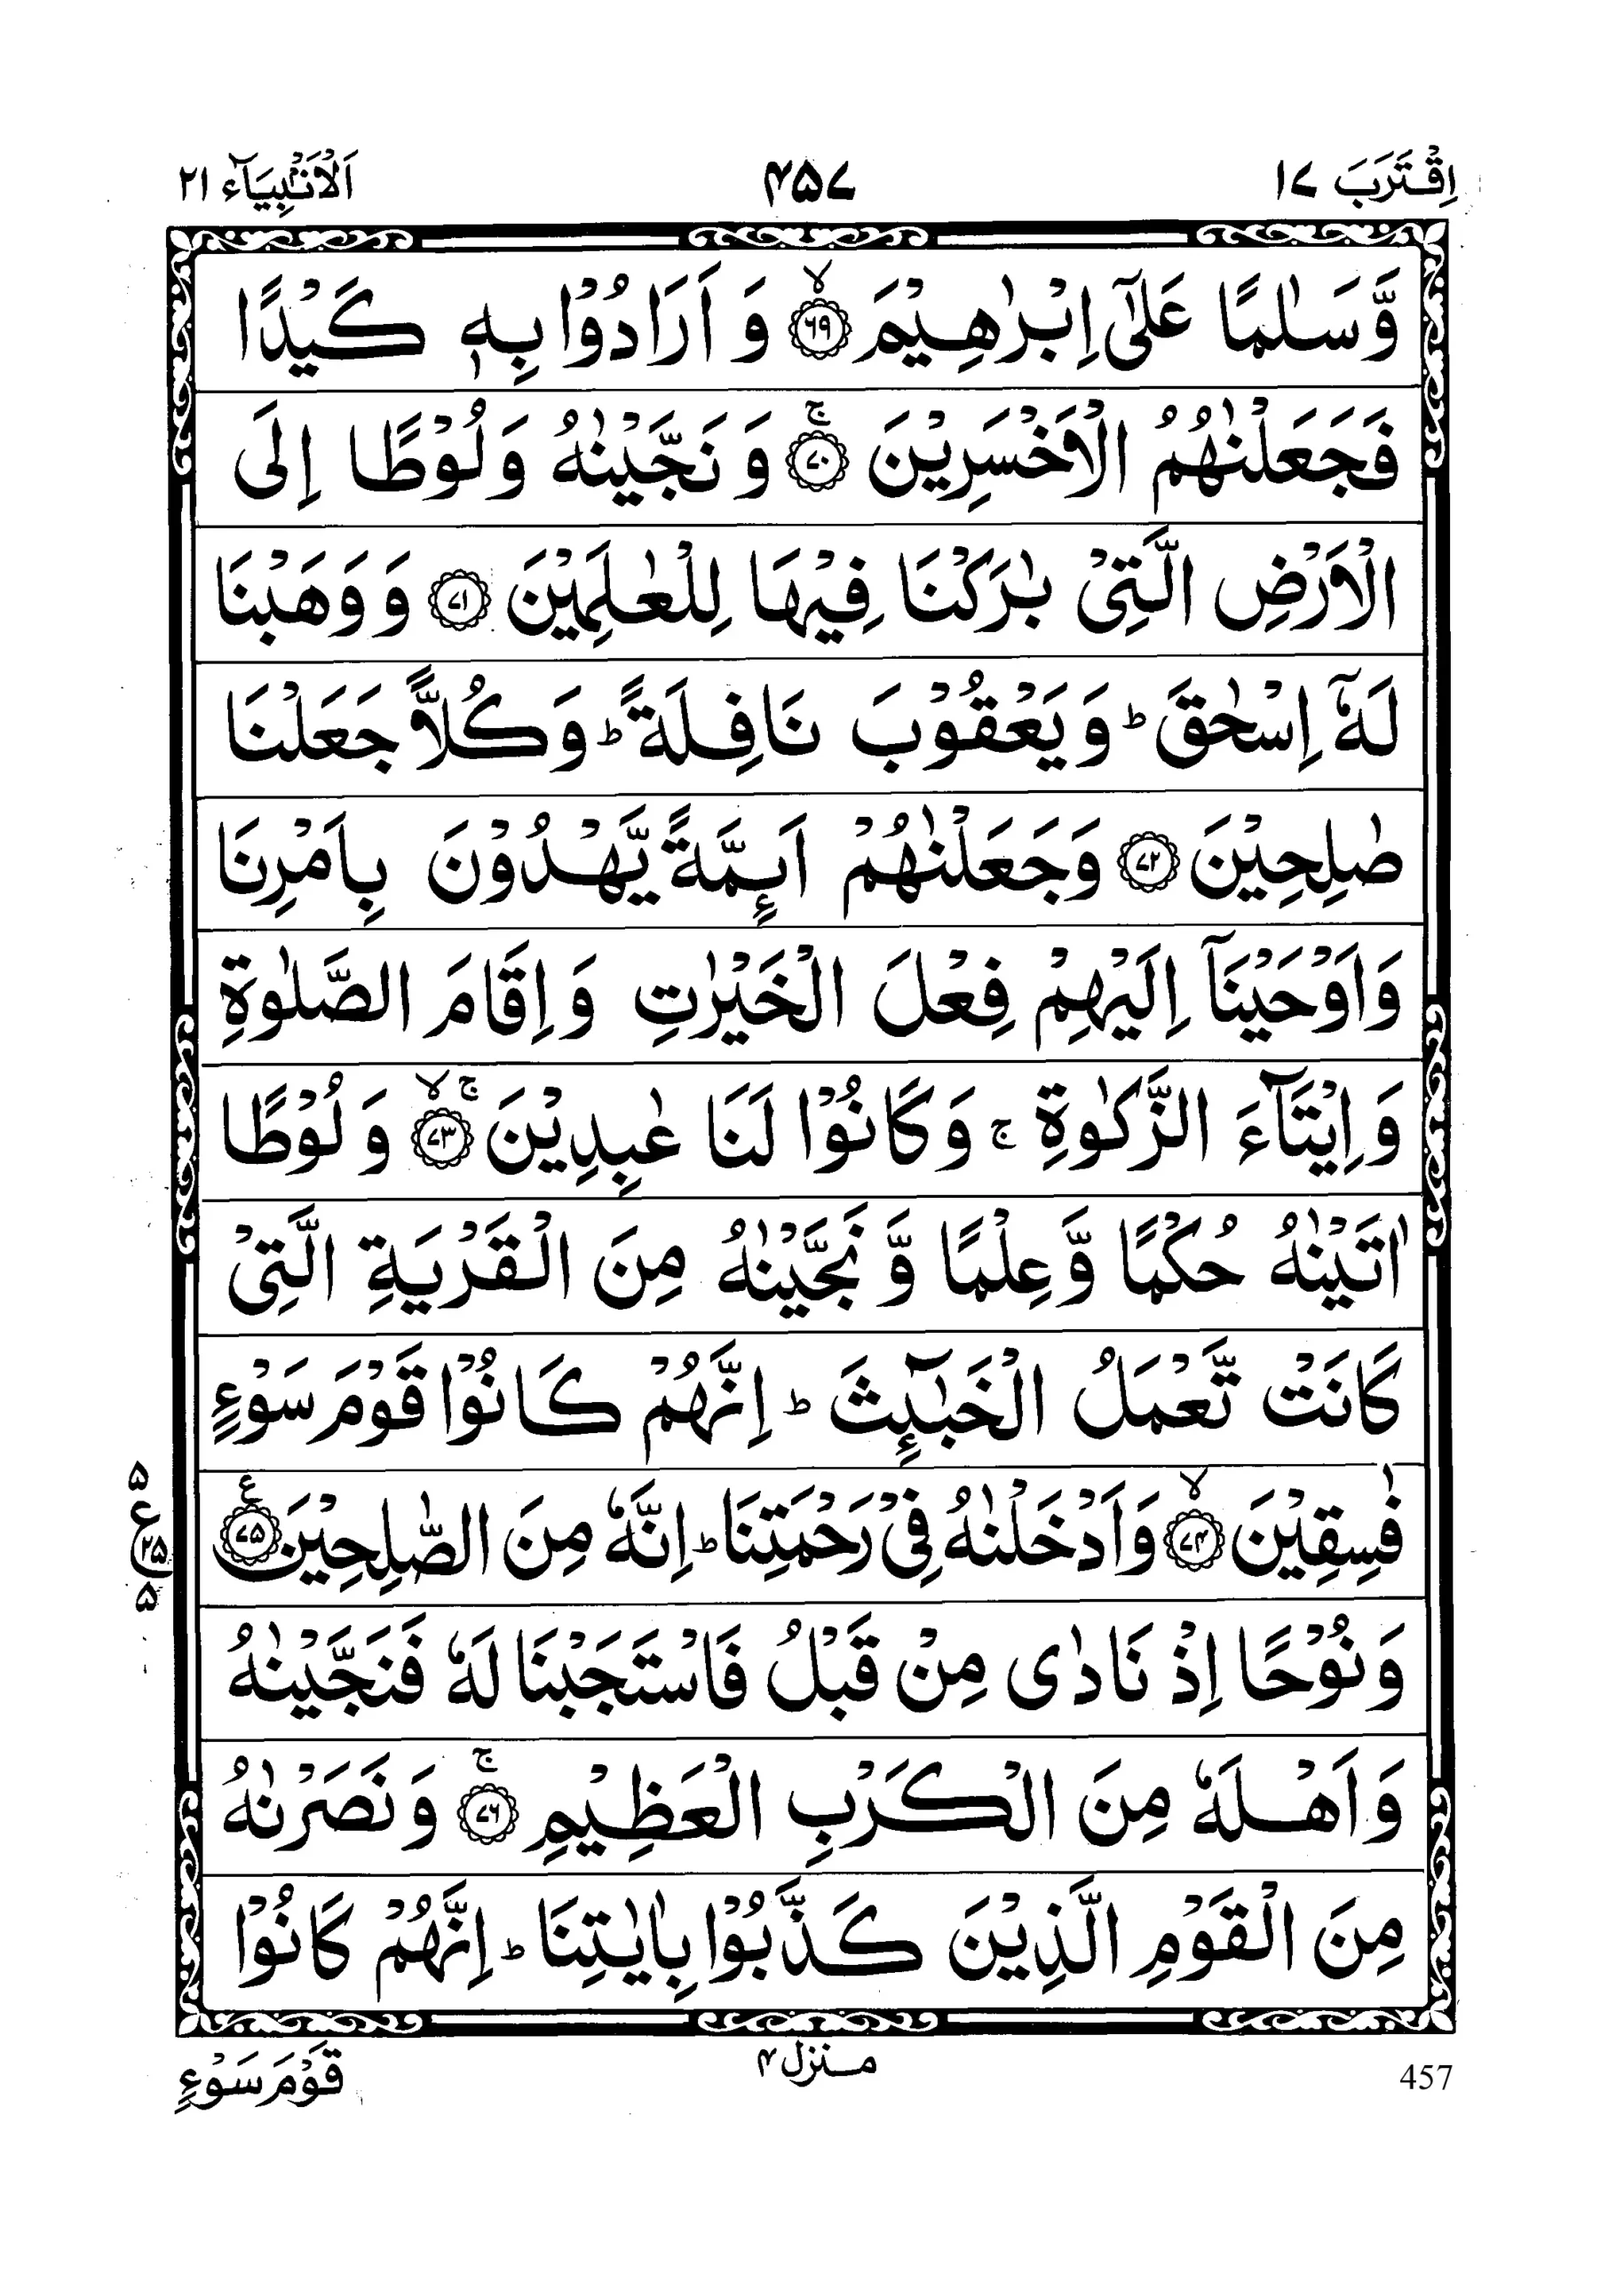 اِقْتَرَبَ ١٧ ٤٥٧ اَلْاَنْۢبِيَآء ٢١
وَّسَلٰمًا عَلٰٓى اِبْرٰهِيْمَ ۙ﴿٦٩﴾ وَ اَرَادُوْا بِهٖ كَيْدًا
فَجَعَلْنٰهُمُ الْاَخْسَرِيْنَ ۚ﴿٧٠﴾ وَ نَجَّيْنٰهُ وَ لُوْطًا اِلَى
الْاَرْضِ الَّتِىْ بٰرَكْنَا فِيْهَا لِلْعٰلَمِيْنَ ﴿٧١﴾ وَ وَهَبْنَا
لَهٗۤ اِسْحٰقَ ؕ وَ يَعْقُوْبَ نَافِلَةً ؕ وَ كُلًّا جَعَلْنَا
صٰلِحِيْنَ ﴿٧٢﴾ وَجَعَلْنٰهُمْ اَىِٕمَّةً يَّهْدُوْنَ بِاَمْرِنَا
وَاَوْحَيْنَاۤ اِلَيْهِمْ فِعْلَ الْخَيْرٰتِ وَ اِقَامَ الصَّلٰوةِ
وَ اِيْتَآءَ الزَّكٰوةِ ۚ وَ كَانُوْا لَنَا عٰبِدِيْنَ ۚۙ﴿٧٣﴾ وَ لُوْطًا
اٰتَيْنٰهُ حُكْمًا وَّ عِلْمًا وَّ نَجَّيْنٰهُ مِنَ الْقَرْيَةِ الَّتِىْ
كَانَتْ تَّعْمَلُ الْخَبٰٓىِٕثَ ؕ اِنَّهُمْ كَانُوْا قَوْمَ سَوْءٍ
فٰسِقِيْنَ ۙ﴿٧٤﴾ وَاَدْخَلْنٰهُ فِىْ رَحْمَتِنَا ؕ اِنَّهٗ مِنَ الصّٰلِحِيْنَ ﴿٧٥﴾ ع
٥ ع ٢٥ ٥
وَ نُوْحًا اِذْ نَادٰى مِنْ قَبْلُ فَاسْتَجَبْنَا لَهٗ فَنَجَّيْنٰهُ
وَ اَهْلَهٗ مِنَ الْكَرْبِ الْعَظِيْمِ ۚ﴿٧٦﴾ وَ نَصَرْنٰهُ
مِنَ الْقَوْمِ الَّذِيْنَ كَذَّبُوْا بِاٰيٰتِنَا ؕ اِنَّهُمْ كَانُوْا
457 منزل ٤ قَوْمَ سَوْءٍ